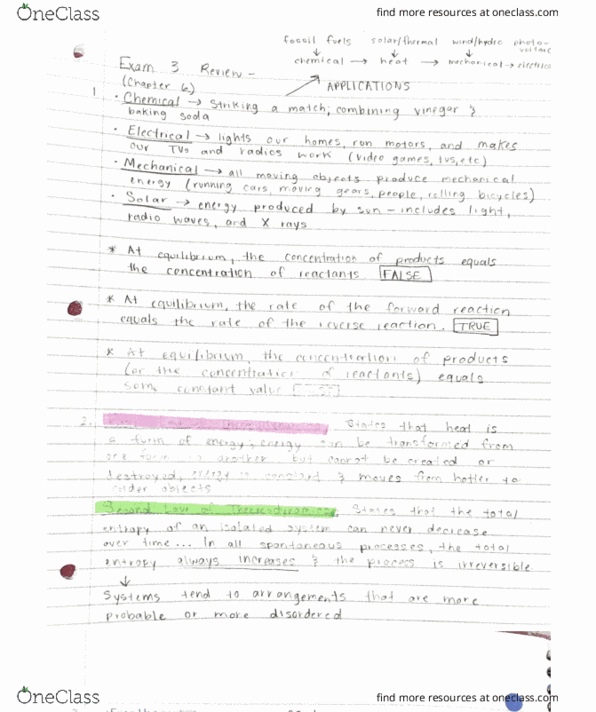 OneClass
find more resources at oneclass.com
fossil fuels solar/thermal wind/hydro photo-
voltaic
↓ ↓ ↓
chemical → heat → mechanical → electrical
Exam 3 Review -
(Chapter 6)
APPLICATIONS
1.
· Chemical → striking a match; combining vinegar &
baking soda
· Electrical → lights our homes, run motors, and makes
our TVs and radios work (video games, tvs, etc)
· Mechanical → all moving objects produce mechanical
energy (running cars, moving gears, people, rolling bicycles)
· Solar → energy produced by sun - includes light,
radio waves, and X rays
* At equilibrium, the concentration of products equals
the concentration of reactants FALSE
* At equilibrium, the rate of the forward reaction
equals the rate of the reverse reaction. TRUE
* At equilibrium, the concentration of products
(or the concentration of reactants) equals
some constant value
2. States that heat is
a form of energy; energy can be transformed from
one form to another but cannot be created or
destroyed, energy is constant & moves from hotter to
colder objects
Second Law of Thermodynamics, States that the total
entropy of an isolated system can never decrease
over time... In all spontaneous processes, the total
entropy always increases & the process is irreversible
↓
Systems tend to arrangements that are more
probable or more disordered
OneClass
find more resources at oneclass.com